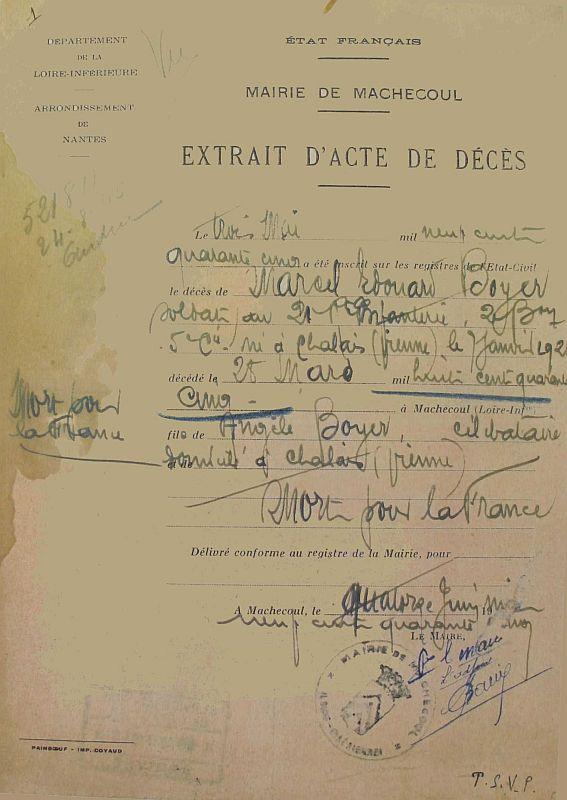 1
DÉPARTEMENT
DE LA
LOIRE-INFÉRIEURE
ARRONDISSEMENT
DE
NANTES
Vu
ÉTAT FRANÇAIS
MAIRIE DE MACHECOUL
EXTRAIT D'ACTE DE DÉCÈS
521
24-8
Le trois Mai mil neuf cent
quarante cinq a été inscrit sur les registres de l'Etat-Civil
le décès de Marcel Edouard Boyer
soldat au 21e Rt Infanterie, 2e Bon
5e Cie né à Chalais (Vienne) le 7 janvier 192
décédé le 25 Mars mil huit cent quarante
cinq - à Machecoul (Loire-Inf
Mort pour
la France
fils de Angèle Boyer, célibataire
et de domicilié à Chalais (Vienne)
Mort pour la France
Délivré conforme au registre de la Mairie, pour
A Machecoul, le quatorze Juin mil 19
neuf cent quarante cinq
LE MAIRE,
P. le maire
l'adjoint
MAIRIE DE MACHECOUL
PAINBŒUF - IMP. COYAUD
T.S.V.P.